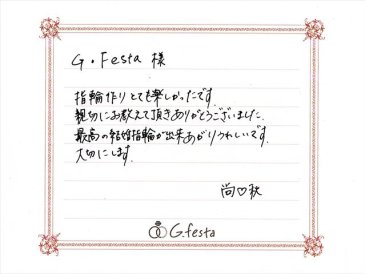 G.Festa 様
指輪作りとても楽しかったです。
親切にお教えて頂きありがとうございました。
最高の結婚指輪が出来あがりうれしいです。
大切にします。
尚♡秋
G.festa